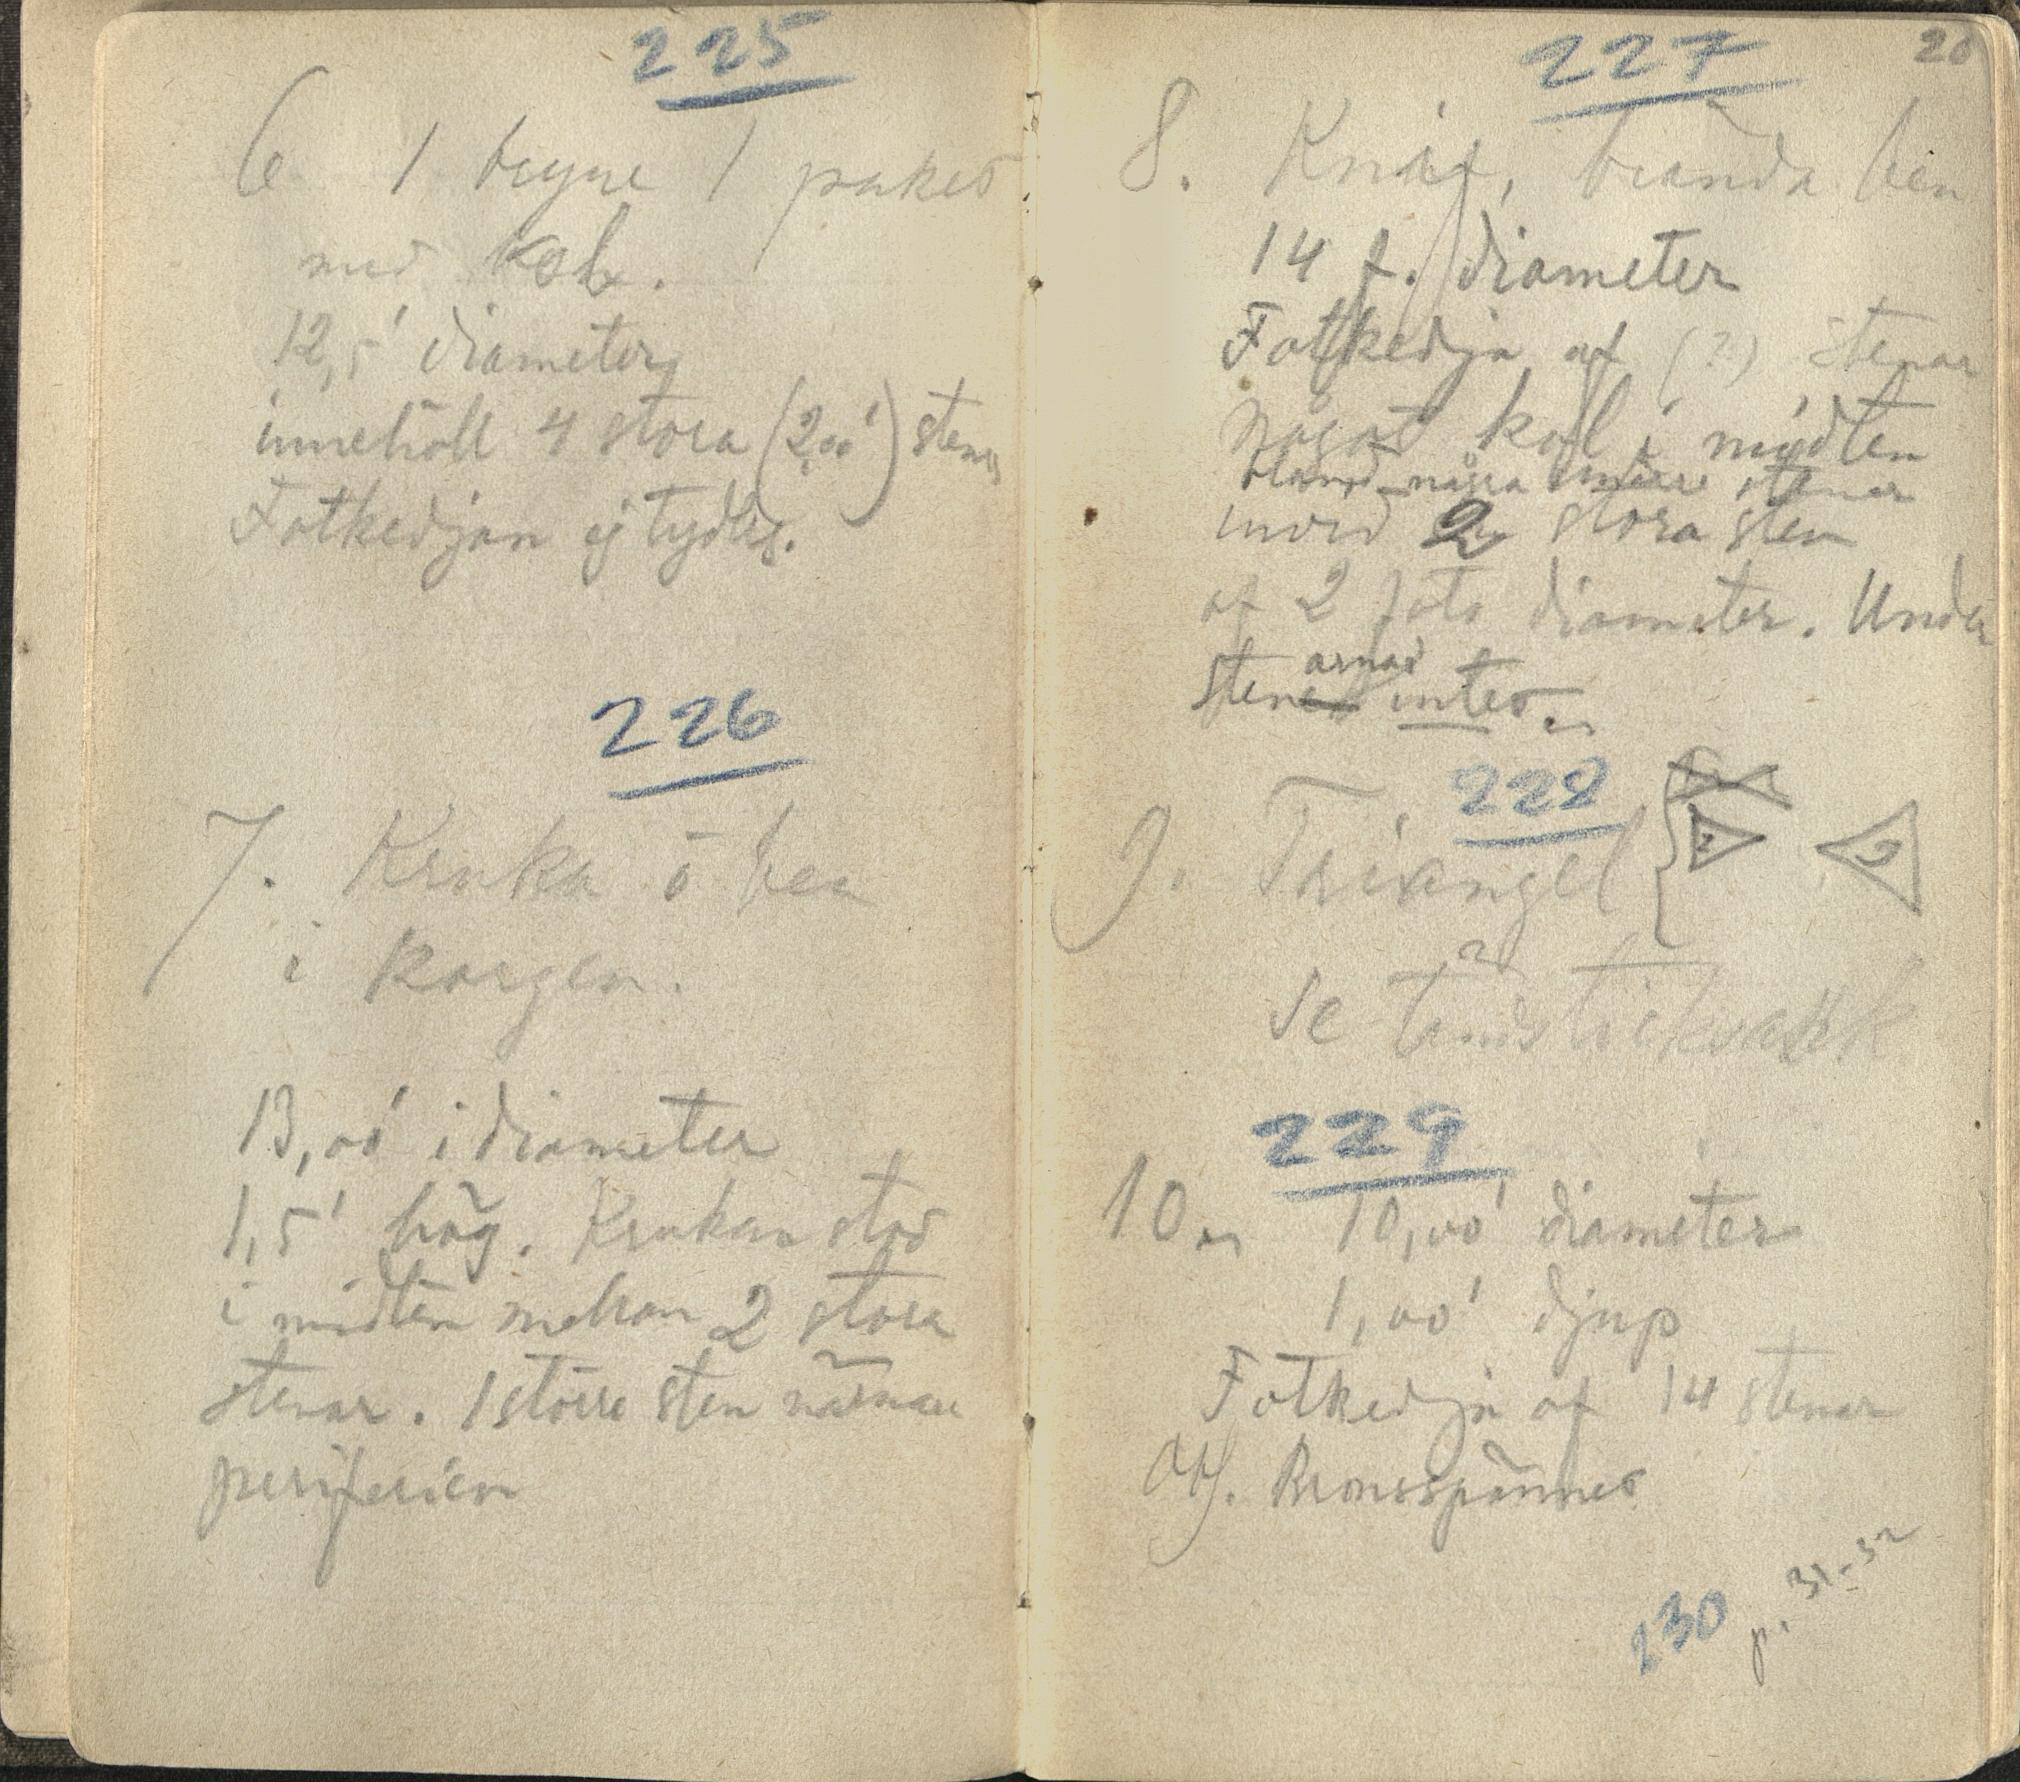 225
6 1 bryne 1 paket
med kol.
12,5' diameter
innehöll 4 stora (2,00') stenar
Fotkedjan ej tydlig.
226
7. Kruka o ben
i korgen.
13,00' i diameter
1,5' hög. Krukan stod
i midten mellan 2 stora
stenar. 1 större sten närmare
periferien
20
227
8. Knif, brända ben
14 f. diameter
Fotkedja af (?) stenar
Något kol i midten
bland några smärre stenar
invid 2 stora sten
af 2 fots diameter. Under
stenarnas intet.
228
9. Triangel
Se tändsticksask
229
10. 10,00' diameter
1,00' djup
Fotkedja af 14 stenar
Bronsspännes
230 p. 31-32